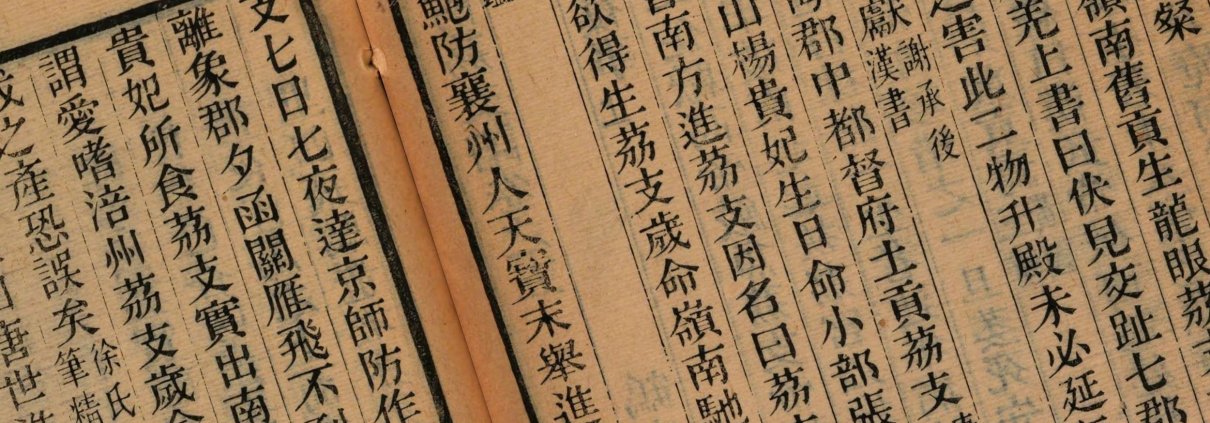 粲
嶺南舊貢生龍眼荔
羌上書曰伏見交趾七郡
之害此二物升殿未必延
獻謝承後漢書
郡中都督府土貢荔支
山楊貴妃生日命小部張
南方進荔支因名曰荔
欲得生荔支歲命嶺南馳
鮑防襄州人天寶末舉進
支七日七夜達京師防作
離象郡夕函關雁飛不到
貴妃所食荔支實出南
謂愛嗜涪州荔支歲命
之產恐誤矣徐氏筆精
唐世進